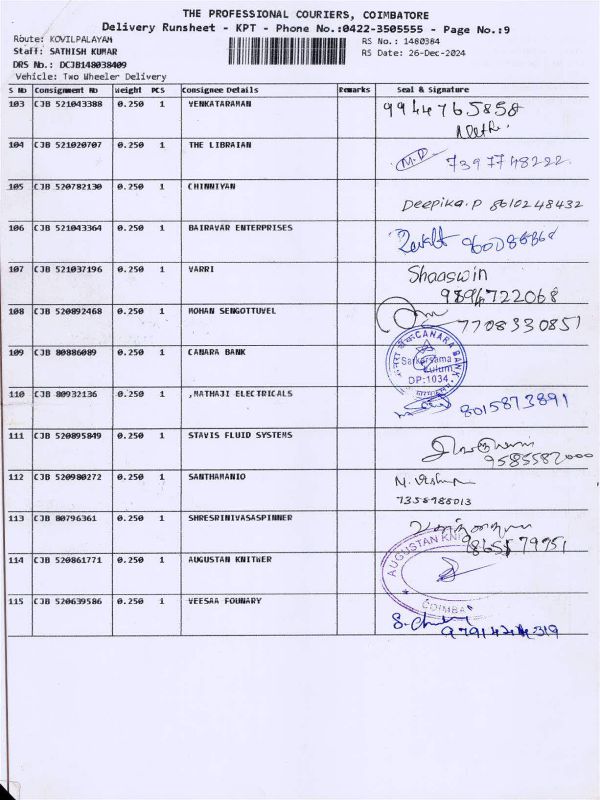 THE PROFESSIONAL COURIERS, COIMBATORE
Delivery Runsheet - KPT - Phone No.:0422-3505555 - Page No.:9
Route: KOVILPALAYAM
RS No.: 1480384
Staff: SATHISH KUMAR
RS Date: 26-Dec-2024
DRS No.: DCJB148038409
Vehicle: Two Wheeler Delivery
S No Consignment No Weight PCS Consignee Details Remarks Seal & Signature
103 CJB 521043388 0.250 1 VENKATARAMAN 9944765858
104 CJB 521020707 0.250 1 THE LIBRAIAN M.D 7397748222
105 CJB 520782130 0.250 1 CHINNIYAN Deepika.P 8610248432
106 CJB 521043364 0.250 1 BAIRAVAR ENTERPRISES
107 CJB 521037196 0.250 1 VARRI Shaaswin
9894722068
108 CJB 520892468 0.250 1 MOHAN SENGOTTUVEL 7708330851
109 CJB 80886089 0.250 1 CANARA BANK CANARA BANK
Sarkarsama
Kulum
DP:1034
110 CJB 80932136 0.250 1 ,MATHAJI ELECTRICALS 8015873891
111 CJB 520895849 0.250 1 STAVIS FLUID SYSTEMS
9585582000
112 CJB 520980272 0.250 1 SANTHAMANIO
7358985013
113 CJB 80796361 0.250 1 SHRESRINIVASASPINNER
114 CJB 520861771 0.250 1 AUGUSTAN KNITWER AUGUSTAN KNIT
115 CJB 520639586 0.250 1 VEESAA FOUNARY